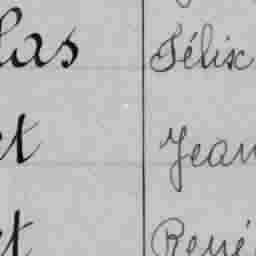 las Félix
et Jean
et René